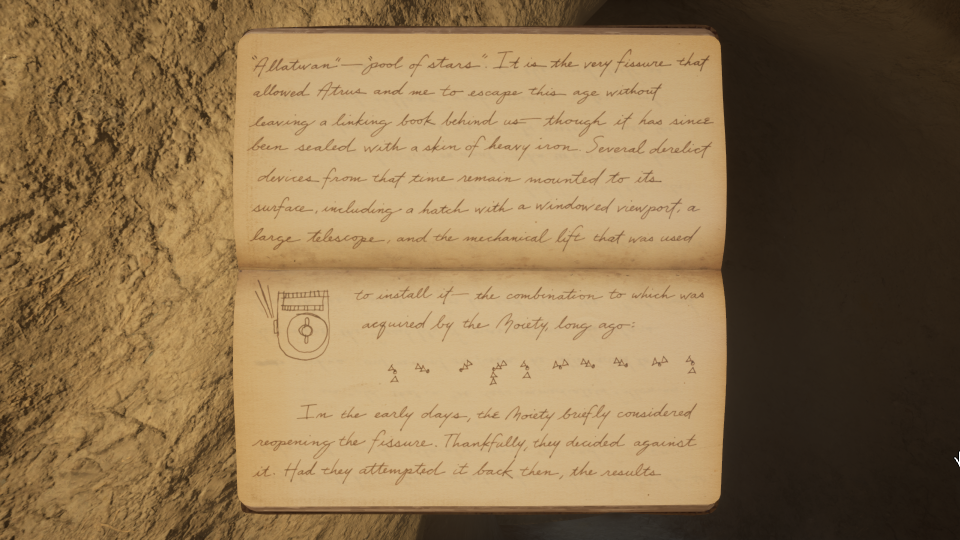 "Allatwan"—"pool of stars". It is the very fissure that
allowed Atrus and me to escape this age without
leaving a linking book behind us—though it has since
been sealed with a skin of heavy iron. Several derelict
devices from that time remain mounted to its
surface, including a hatch with a windowed viewport, a
large telescope, and the mechanical lift that was used
to install it—the combination to which was
acquired by the Moiety, long ago:
In the early days, the Moiety briefly considered
reopening the fissure. Thankfully, they decided against
it. Had they attempted it back then, the results